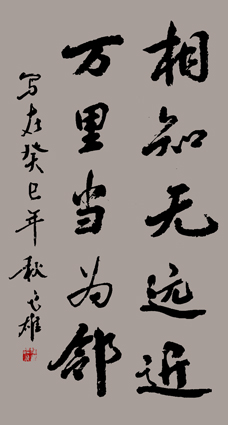 相知无远近
万里当为邻
写在癸巳年秋雄